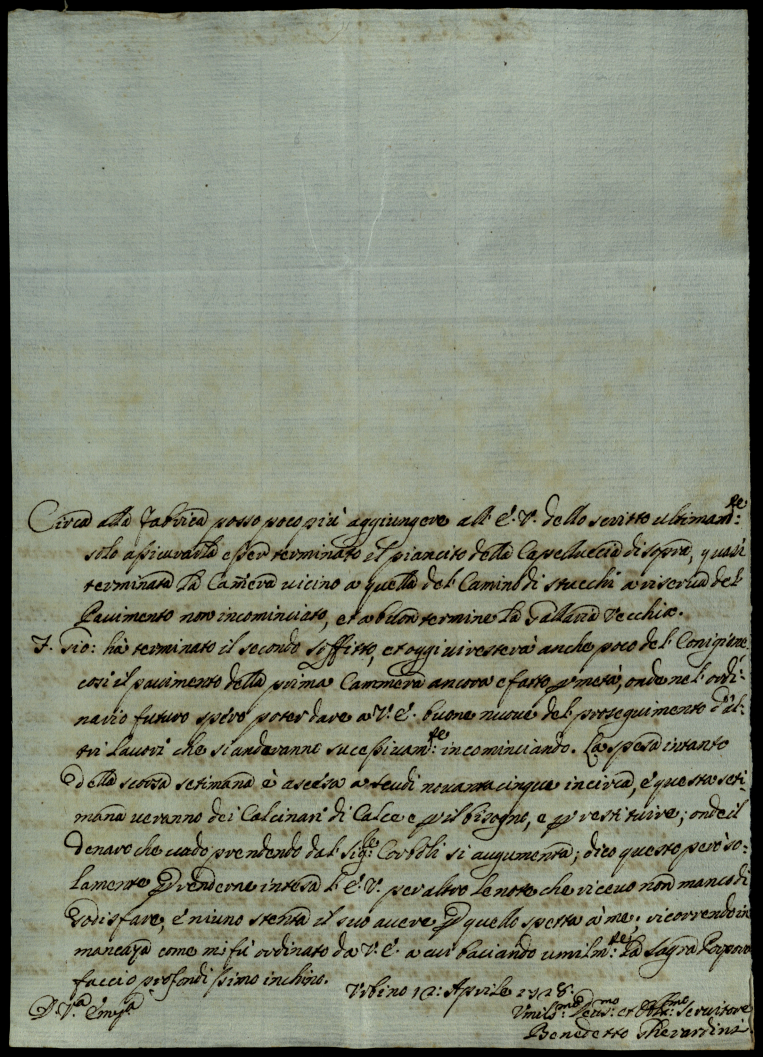 Circa alla fabrica posso poco più aggiungere all' E. V. dello scritto ultimam.te:
solo assicurarla esser terminato il piancito della Capelluccia di sopra, quasi
terminata la Camera vicino a quella del Camino di stucchi a riserva del
Pavimento non incominciato, et a buon termine la Vecchia.
F. Gio: hà terminato il secondo soffitto, et oggi vi resterà anche poco del Cornigione
così il pavimento della prima Cammera ancora e fatto p metà, onde nel ordi-
nario futuro spero poter dare a V. E. buone nuove del proseguimento d'al-
tri lauori che si anderanno sucessivam.te: incominciando. La spesa intanto
della scorsa setimana è ascesa a scudi nouanta cinque in circa, e questa seti-
mana veranno dei Calcinari di Calce e p il bisogno, e p restituire; onde il
denaro che uado prendendo dal Sig.re Corboli si augumenta; dico questo però so-
lamente p renderne intesa l' E. V. per altro le note che riceuo non manco di
sodisfare, e niuno stenta il suo auere p quello spetta à me: ricorrendo in
mancaza come mi fù ordinato da V. E. a cui baciando umilm.te: la Sagra Porpora
faccio profondissimo inchino.
Urbino 12: Aprile 1728.
D. V.ra Em.za
Umiliss.mo Deu.mo et Obl.mo Seruitore
Benedetto Gherardini